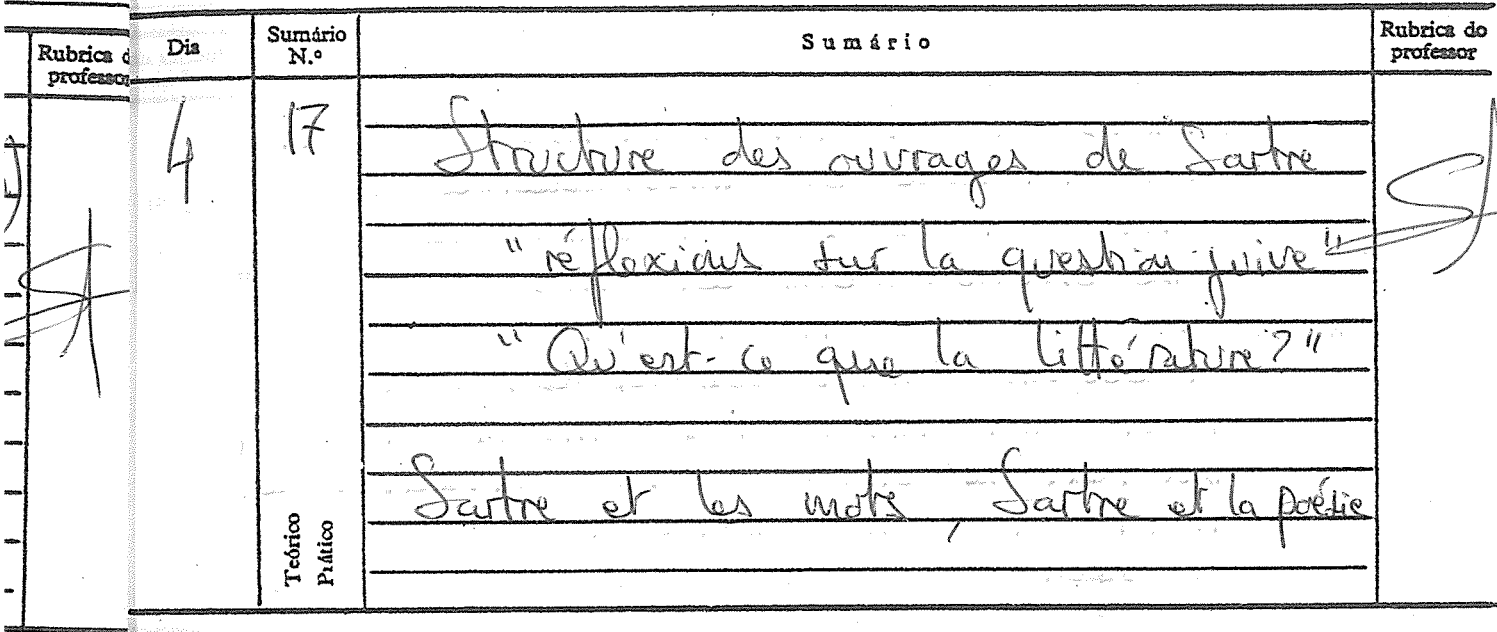 Rubrica d
professor
Dia
Sumário
N.º
Sumário
Rubrica do
professor
4
17
Structure des ouvrages de Sartre
"réflexions sur la question juive"
"Qu'est-ce que la littérature?"
Sartre et les mots, Sartre et la poésie
Teórico
Prático